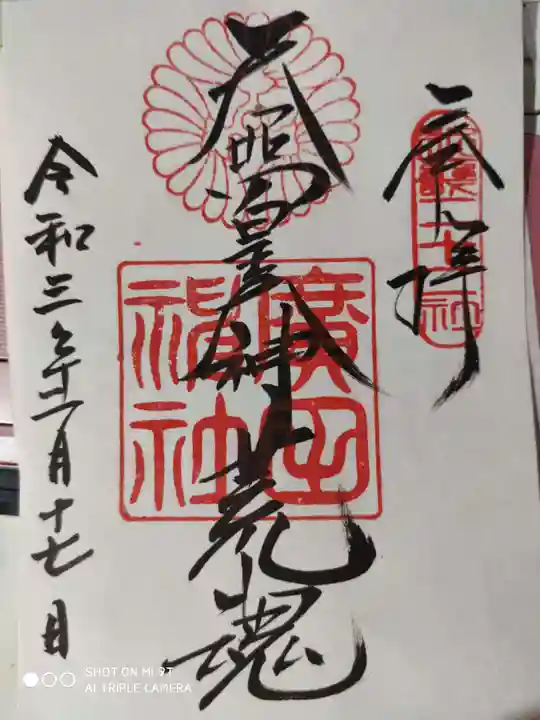 奉拝
二十二社
天照皇大神荒魂
廣田
神社
令和三年十一月十七日
SHOT ON MI 9T
AI TRIPLE CAMERA